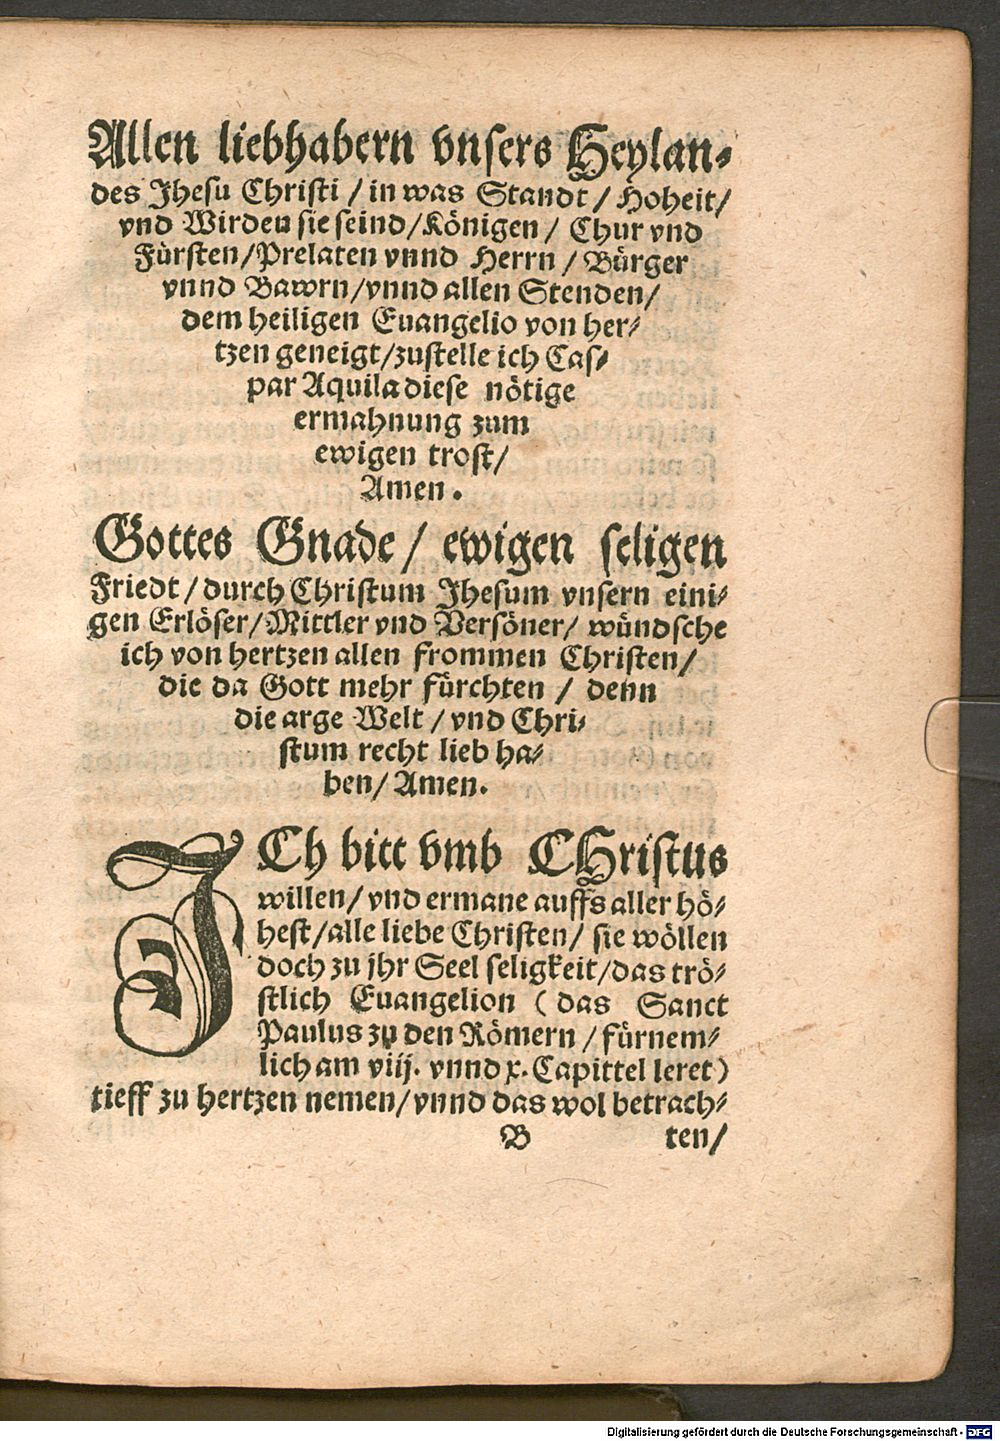 Allen liebhabern vnsers Heylan-
des Jhesu Christi / in was Standt / Hoheit /
vnd Wirden sie seind / Königen / Chur vnd
Fürsten / Prelaten vnnd Herrn / Bürger
vnnd Bawrn / vnnd allen Stenden /
dem heiligen Euangelio von her-
tzen geneigt / zustelle ich Cas-
par Aquila diese nötige
ermahnung zum
ewigen trost /
Amen.
Gottes Gnade / ewigen seligen
Friedt / durch Christum Jhesum vnsern eini-
gen Erlöser / Mittler vnd Versöner / wündsche
ich von hertzen allen frommen Christen /
die da Gott mehr fürchten / denn
die arge Welt / vnd Chri-
stum recht lieb ha-
ben / Amen.
JCh bitt vmb CHristus
willen / vnd ermane auffs aller hö-
hest / alle liebe Christen / sie wöllen
doch zu jhr Seel seligkeit / das trö-
stlich Euangelion ( das Sanct
Paulus zu den Römern / fürnem-
lich am viij. vnnd x. Capittel leret )
tieff zu hertzen nemen / vnnd das wol betrach-
B ten /
Digitalisierung gefördert durch die Deutsche Forschungsgemeinschaft - DFG